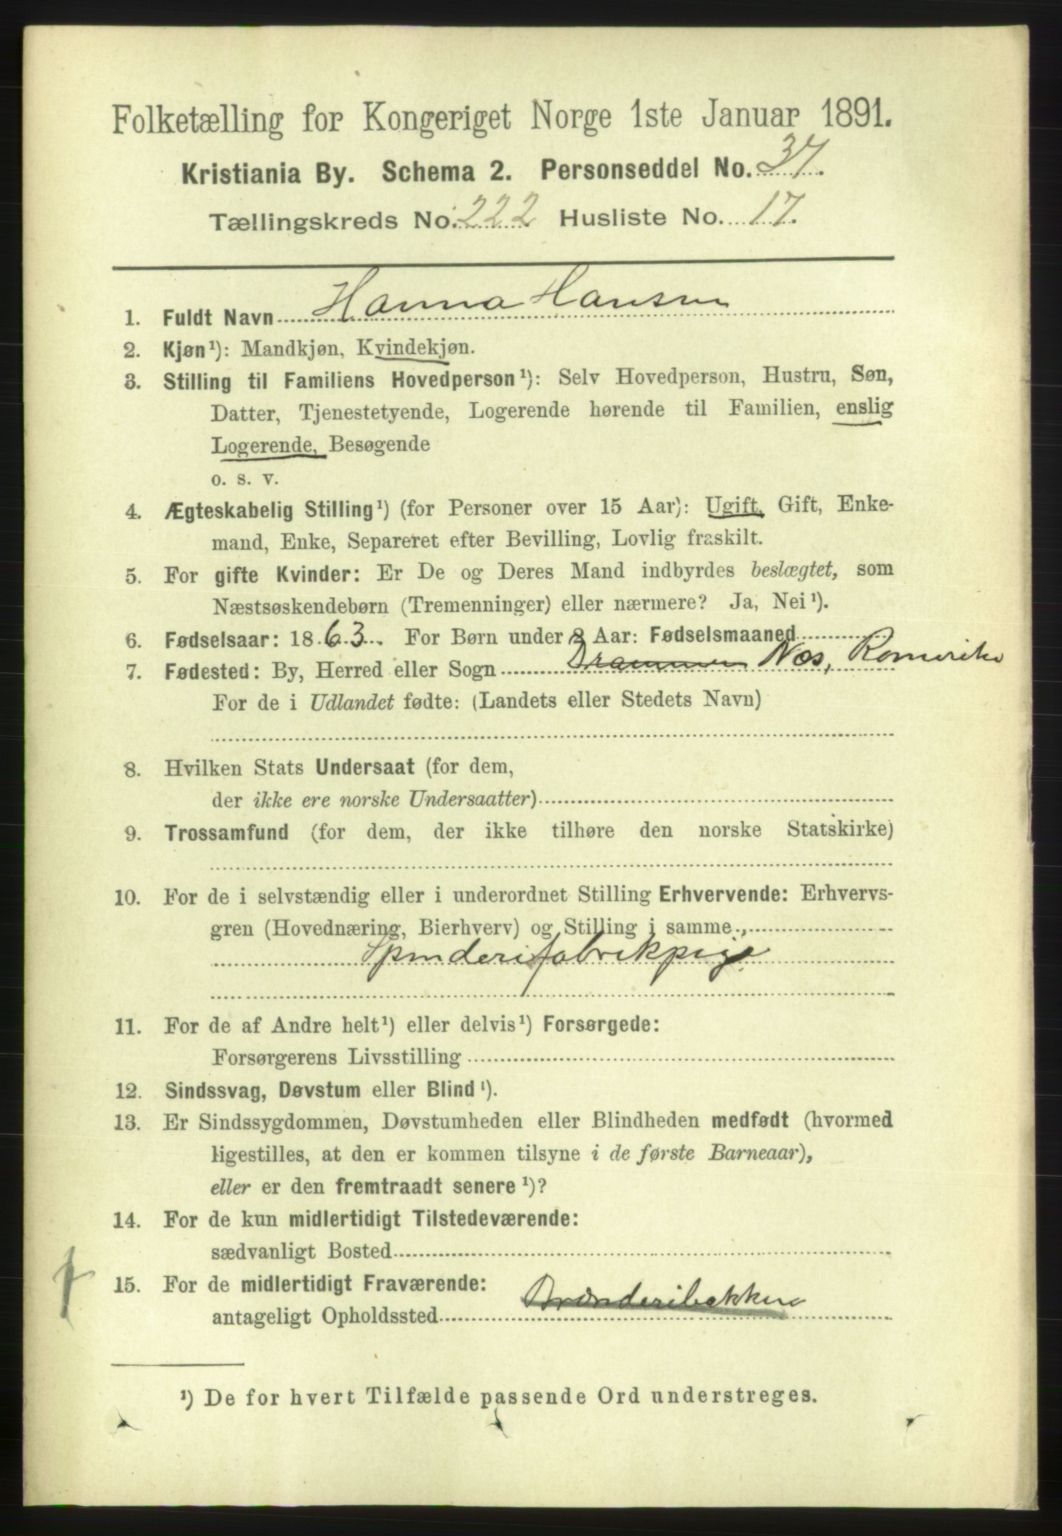 Folketælling for Kongeriget Norge 1ste Januar 1891.
Kristiania By. Schema 2. Personseddel No. 37.
Tællingskreds No. 222 Husliste No. 17.
1. Fuldt Navn Hanna Hansen
2. Kjøn¹): Mandkjøn, Kvindekjøn.
3. Stilling til Familiens Hovedperson¹): Selv Hovedperson, Hustru, Søn,
Datter, Tjenestetyende, Logerende hørende til Familien, enslig
Logerende, Besøgende
o. s. v.
4. Ægteskabelig Stilling¹) (for Personer over 15 Aar): Ugift, Gift, Enke-
mand, Enke, Separeret efter Bevilling, Lovlig fraskilt.
5. For gifte Kvinder: Er De og Deres Mand indbyrdes beslægtet, som
Næstsøskendebørn (Tremenninger) eller nærmere? Ja, Nei¹).
6. Fødselsaar: 1863. For Børn under 2 Aar: Fødselsmaaned
7. Fødested: By, Herred eller Sogn Drammen Næs, Romerike
For de i Udlandet fødte: (Landets eller Stedets Navn)
8. Hvilken Stats Undersaat (for dem,
der ikke ere norske Undersaatter)
9. Trossamfund (for dem, der ikke tilhøre den norske Statskirke)
10. For de i selvstændig eller i underordnet Stilling Erhvervende: Erhvervs-
gren (Hovednæring, Bierhverv) og Stilling i samme
Spinderifabrikpige
11. For de af Andre helt¹) eller delvis¹) Forsørgede:
Forsørgerens Livsstilling
12. Sindssvag, Døvstum eller Blind¹).
13. Er Sindssygdommen, Døvstumheden eller Blindheden medfødt (hvormed
ligestilles, at den er kommen tilsyne i de første Barneaar),
eller er den fremtraadt senere¹)?
14. For de kun midlertidigt Tilstedeværende:
sædvanligt Bosted
15. For de midlertidigt Fraværende:
antageligt Opholdssted Brænderibakken
¹) De for hvert Tilfælde passende Ord understreges.